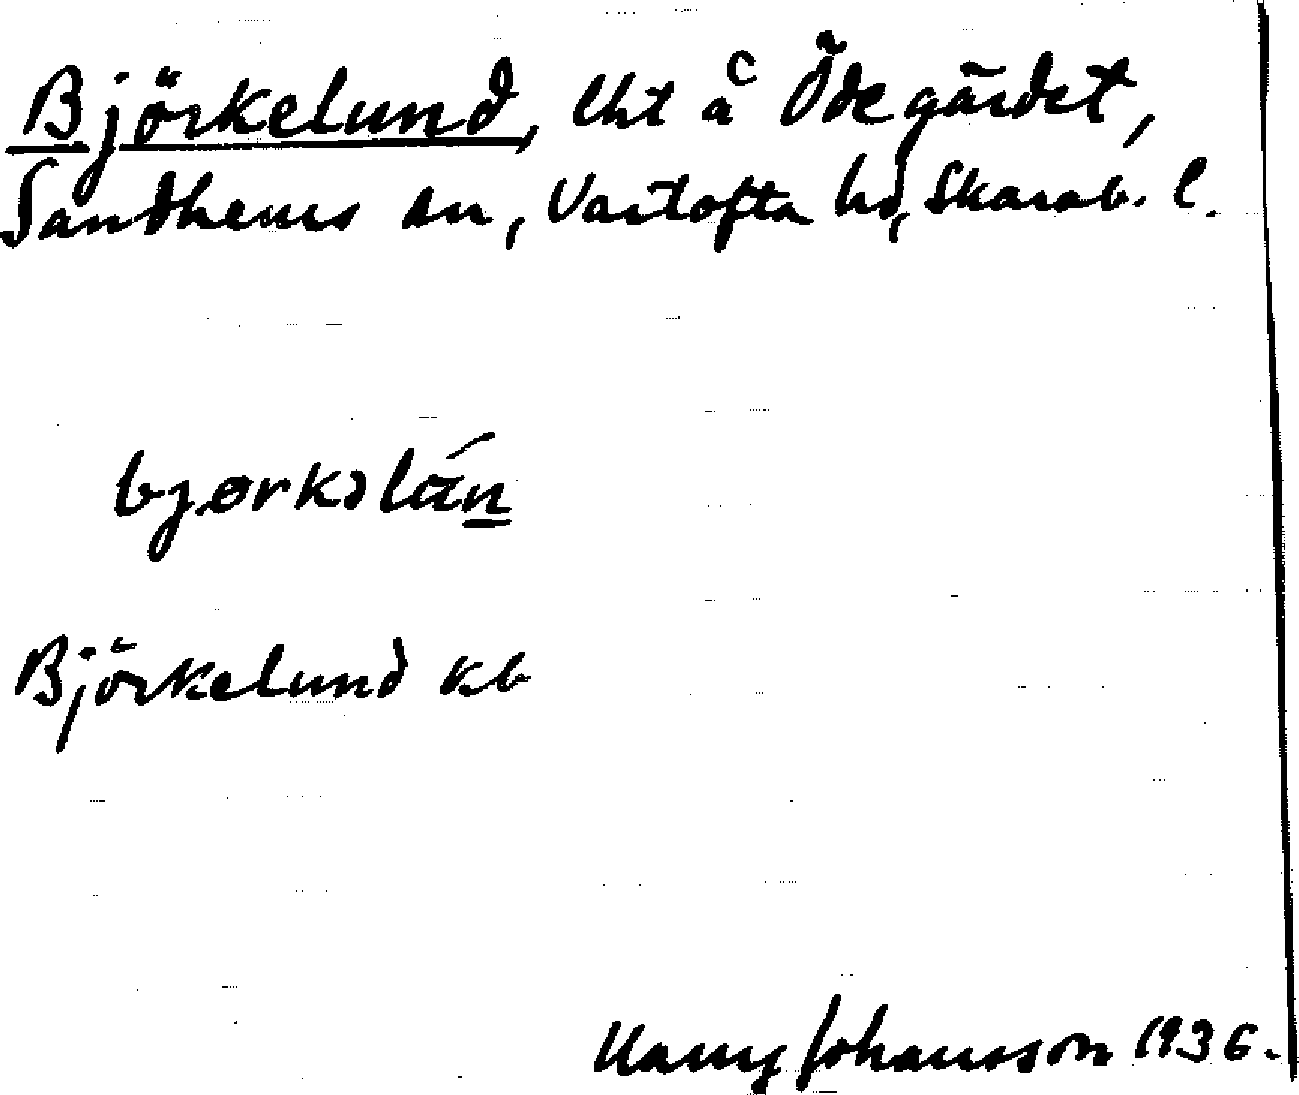 Björkelund, lht å Ödegärdet,
Sandhems sn, Vartofta hd, Skarab. l.
bjørkəlán
Björkelund kb
Harry Johansson 1936.